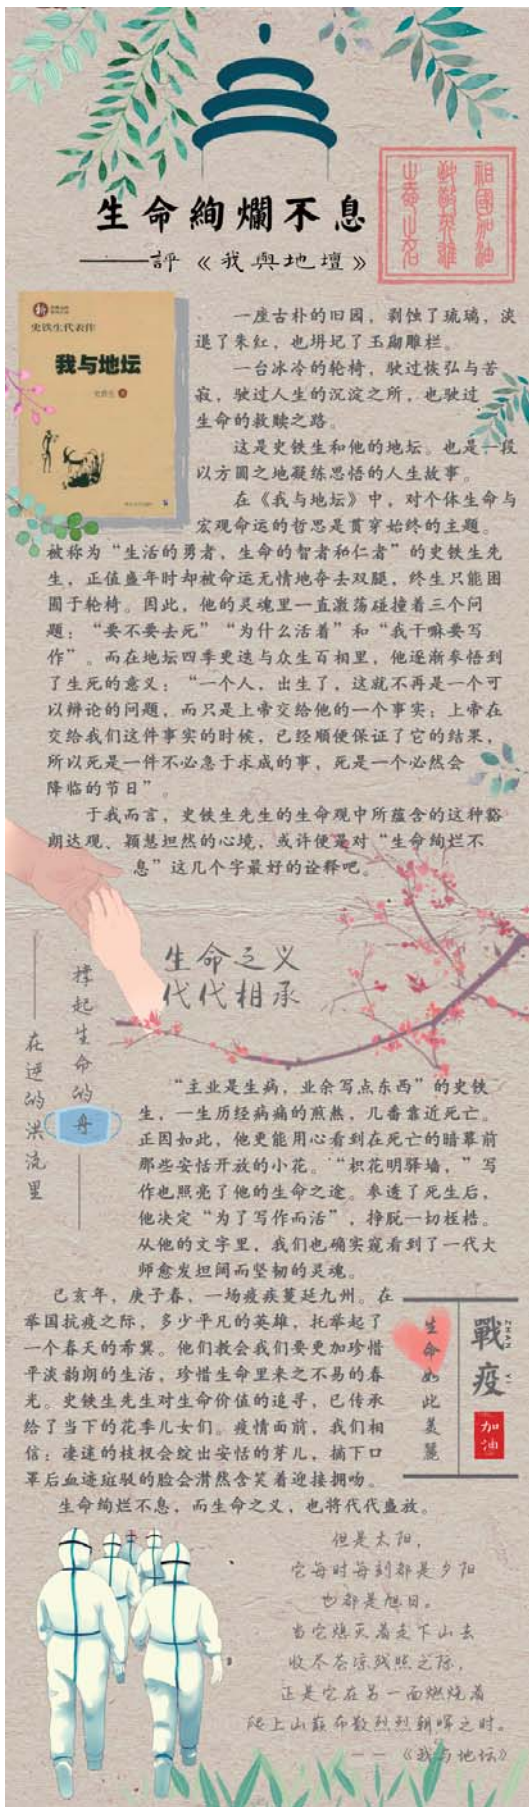 生命絢爛不息
——評《我與地壇》
祖國加油
山泰山名
史铁生代表作
我与地坛
一座古朴的旧园，剥蚀了琉璃，淡
退了朱红，也坍圮了玉砌雕栏。
一台冰冷的轮椅，驶过恢弘与苦
寂，驶过人生的沉淀之所，也驶过
生命的救赎之路。
这是史铁生和他的地坛。也是一段
以方圆之地凝练思悟的人生故事。
在《我与地坛》中，对个体生命与
宏观命运的哲思是贯穿始终的主题。
被称为“生活的勇者，生命的智者和仁者”的史铁生先
生，正值盛年时却被命运无情地夺去双腿，终生只能困
囿于轮椅。因此，他的灵魂里一直激荡碰撞着三个问
题：“要不要去死”“为什么活着”和“我干嘛要写
作”。而在地坛四季更迭与众生百相里，他逐渐参悟到
了生死的意义：“一个人，出生了，这就不再是一个可
以辩论的问题，而只是上帝交给他的一个事实；上帝在
交给我们这件事实的时候，已经顺便保证了它的结果，
所以死是一件不必急于求成的事，死是一个必然会
降临的节日”。
于我而言，史铁生先生的生命观中所蕴含的这种豁
朗达观、颖慧坦然的心境，或许便是对“生命绚烂不
息”这几个字最好的诠释吧。
生命之义
代代相承
撑起生命的舟
——在逆的洪流里
“主业是生病，业余写点东西”的史铁
生，一生历经病痛的煎熬，几番靠近死亡。
正因如此，他更能用心看到在死亡的暗幕前
那些安恬开放的小花。“枳花明驿墙，”写
作也照亮了他的生命之途。参透了死生后，
他决定“为了写作而活”，挣脱一切桎梏。
从他的文字里，我们也确实窥看到了一代大
师愈发坦阔而坚韧的灵魂。
己亥年，庚子春，一场疫疾蔓延九州。在
举国抗疫之际，多少平凡的英雄，托举起了
一个春天的希冀。他们教会我们要更加珍惜
平淡韵朗的生活，珍惜生命里来之不易的春
光。史铁生先生对生命价值的追寻，已传承
给了当下的花季儿女们。疫情面前，我们相
信：凄迷的枝杈会绽出安恬的芽儿，摘下口
罩后血迹斑驳的脸会潸然含笑着迎接拥吻。
生命绚烂不息，而生命之义，也将代代盛放。
生命如此美麗
戰疫
ZHAN YI
加油
但是太阳，
它每时每刻都是夕阳
也都是旭日。
当它熄灭着走下山去
收尽苍凉残照之际，
正是它在另一面燃烧着
爬上山巅布散烈烈朝晖之时。
——《我与地坛》